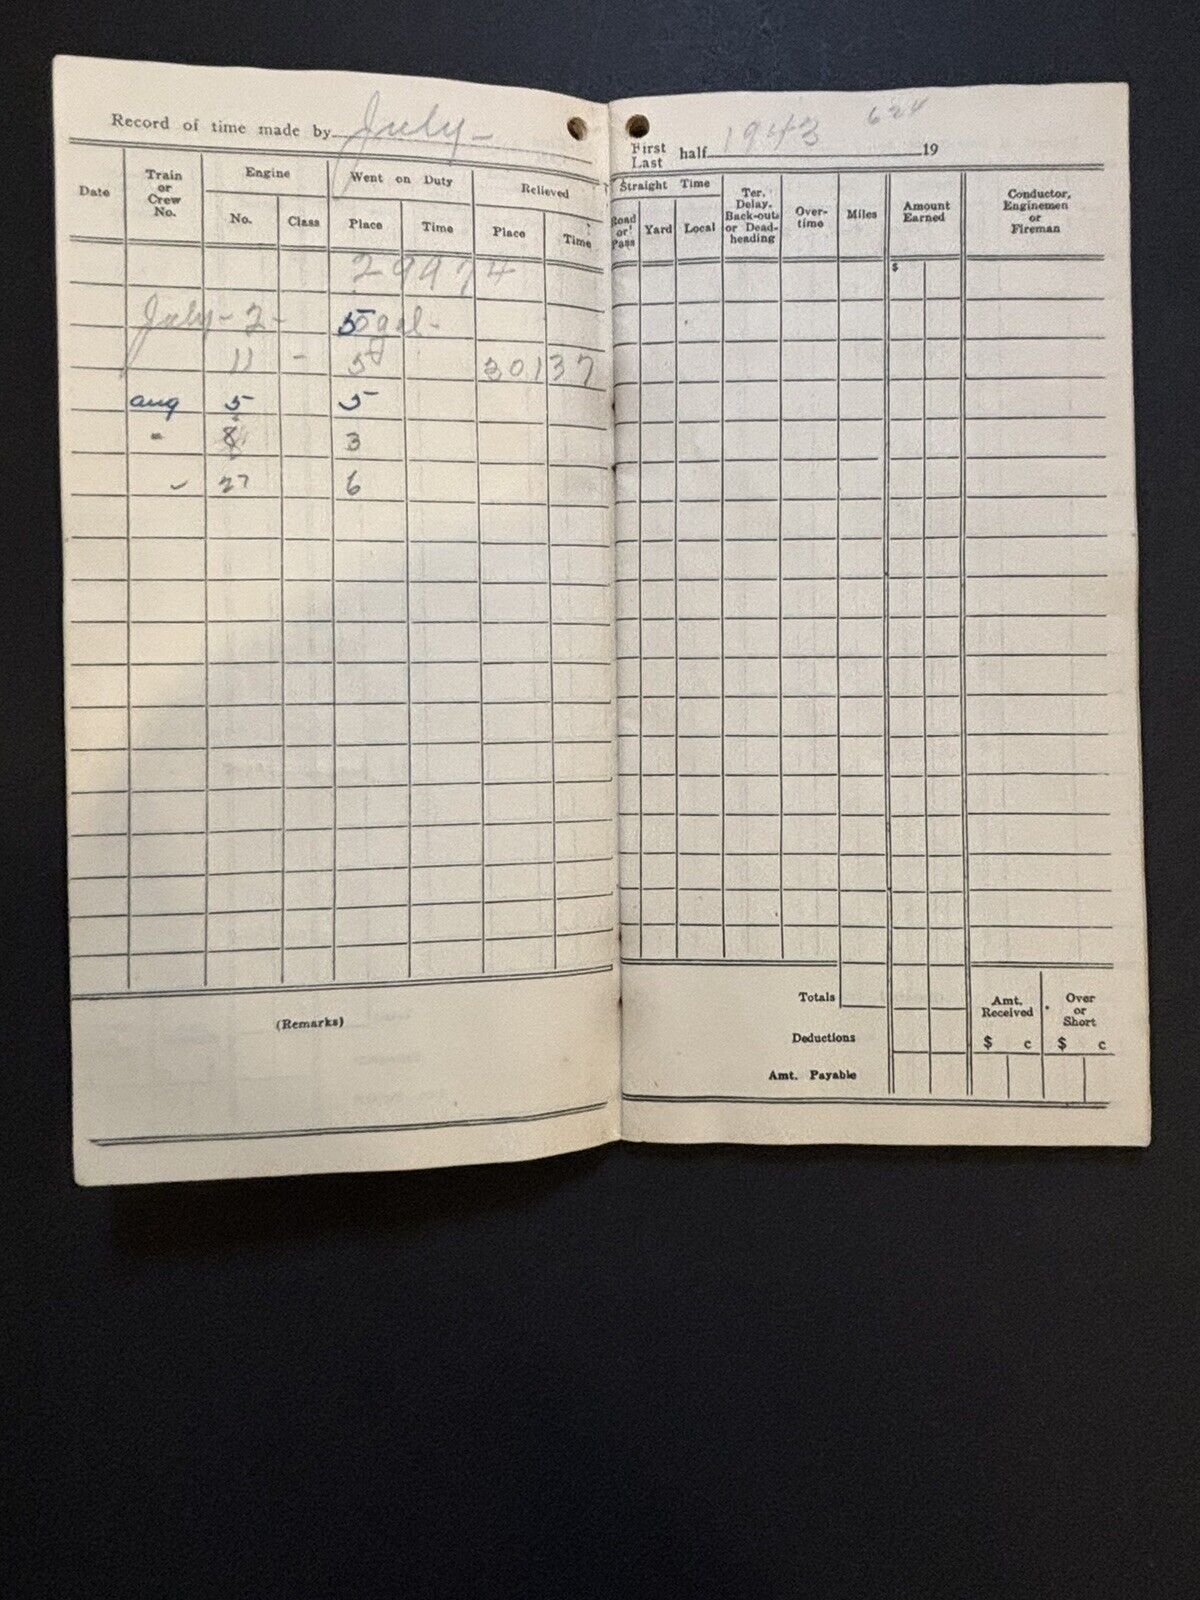 Record of time made by July -
Date
Train or Crew No.
Engine
No.
Class
Went on Duty
Place
Time
Relieved
Place
Time
29974
July - 2 - 5 gal -
11 - 5 30137
aug 5 5
" 8 3
" 27 6
(Remarks)
First Last half 1943 19
624
Straight Time
Road or Pass
Yard
Local
Ter. Delay, Back-out, or Dead-heading
Over-time
Miles
Amount Earned
Conductor, Enginemen or Fireman
$
Totals
Deductions
Amt. Payable
Amt. Received
$ c
Over or Short
$ c